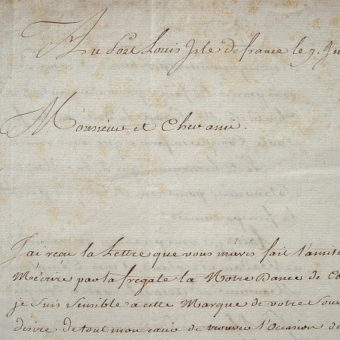 Au Port Louis Isle de france le 7. Ju
Monsieur et Cher ami.
J'ai recu la Lettre que vous mavés fait l'amitié
M'écrire par la fregate la Notre Dame de Co
je Suis Sensible a cette Marque de votre Souv
desire de tout mon cœur de trouver l'Occasion de